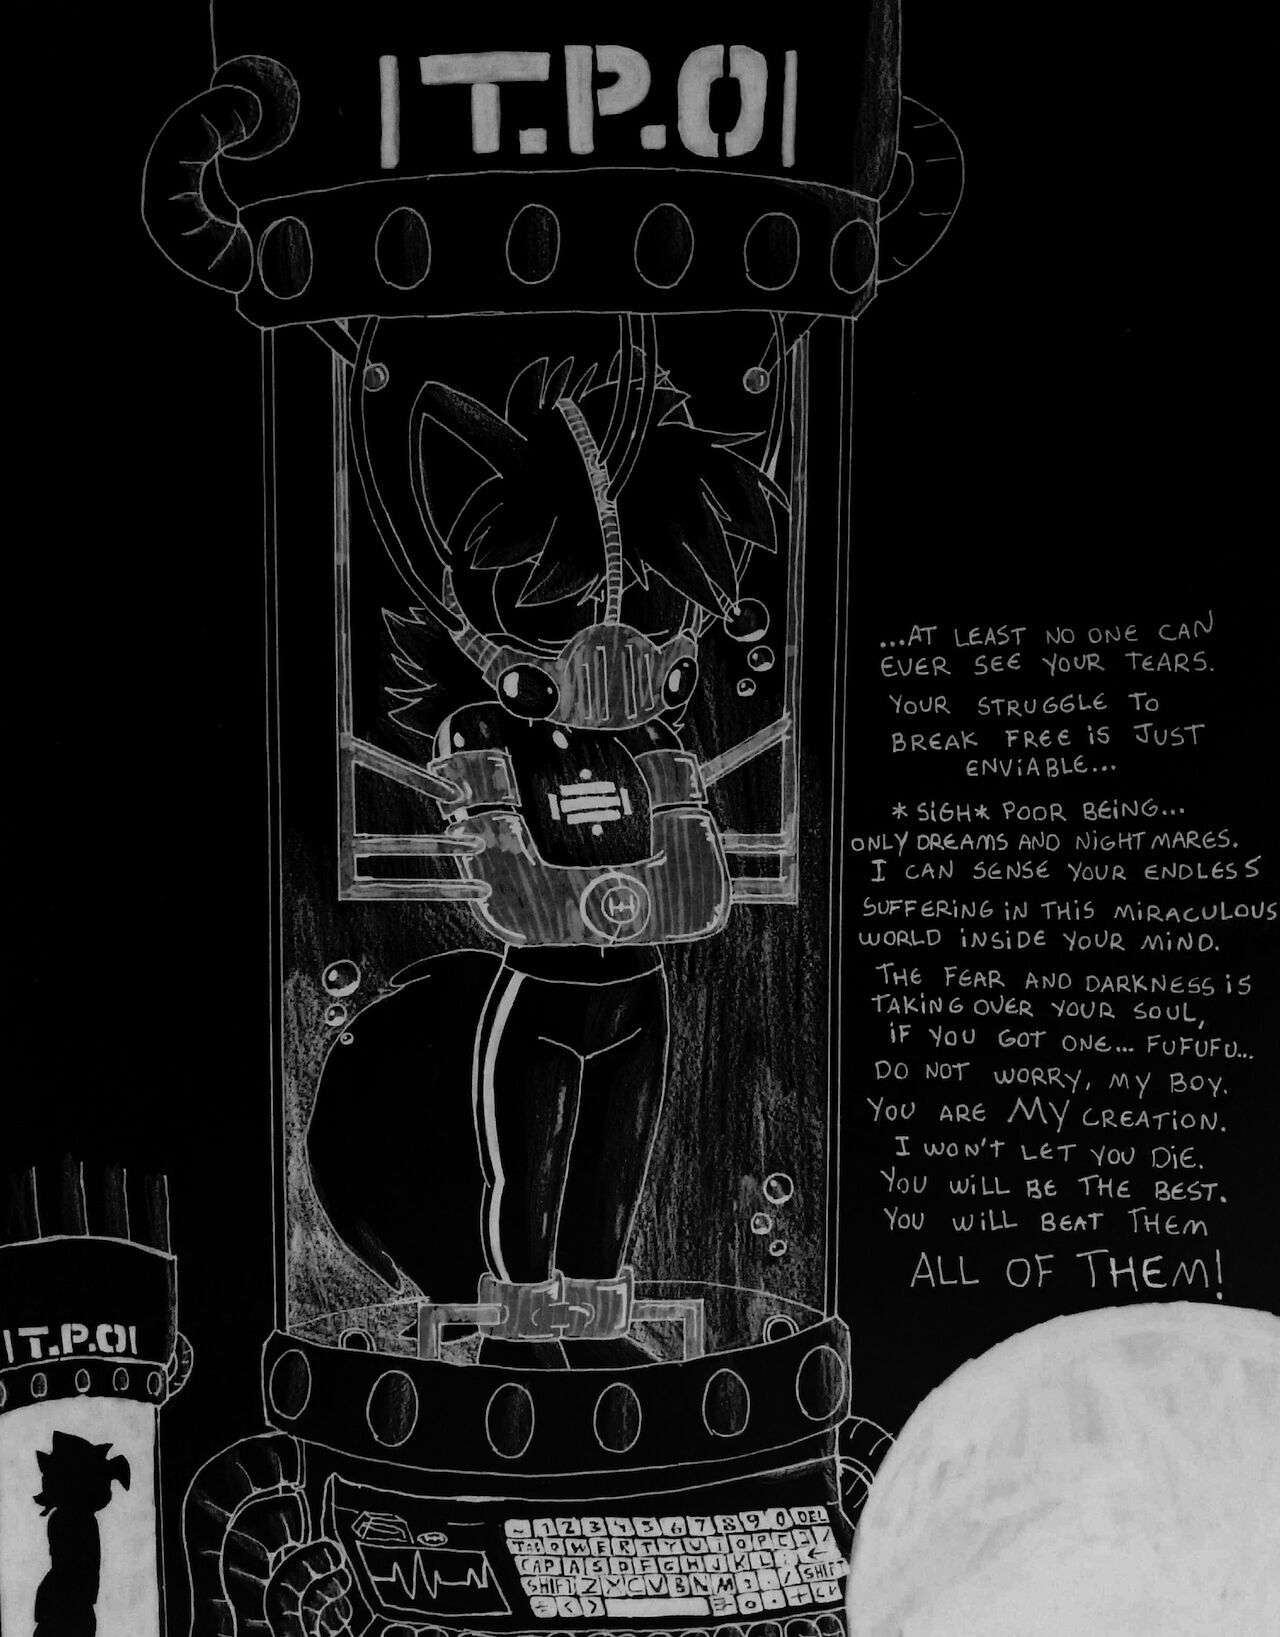 |T.P.O|
...AT LEAST NO ONE CAN
EVER SEE YOUR TEARS.
YOUR STRUGGLE TO
BREAK FREE iS JUST
ENViABLE...
*SiGH* POOR BEiNG...
ONLY DREAMS AND NiGHTMARES.
I CAN SENSE YOUR ENDLESS
SUFFERiNG iN THiS MiRACULOUS
WORLD iNSiDE YOUR MiND.
THE FEAR AND DARKNESS iS
TAKiNG OVER YOUR SOUL,
iF YOU GOT ONE... FUFUFU...
DO NOT WORRY, MY BOY.
YOU ARE MY CREATiON.
I WON'T LET YOU DiE.
YOU WiLL BE THE BEST.
YOU WiLL BEAT THEM
ALL OF THEM!
|T.P.O|
~ 1 2 3 4 5 6 7 8 9 0 DEL
TAB Q W E R T Y U I O P
CAP A S D F G H J K L ; ←
SHIFT Z X C V B N M / SHIFT
< >